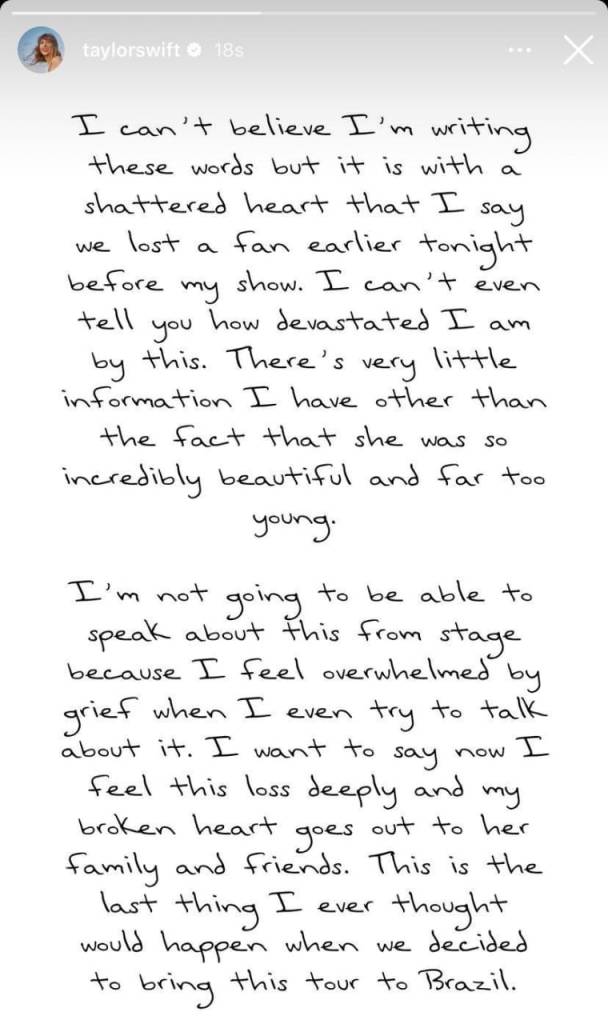 taylorswift 18s
I can't believe I'm writing
these words but it is with a
shattered heart that I say
we lost a fan earlier tonight
before my show. I can't even
tell you how devastated I am
by this. There's very little
information I have other than
the fact that she was so
incredibly beautiful and far too
young.
I'm not going to be able to
speak about this from stage
because I feel overwhelmed by
grief when I even try to talk
about it. I want to say now I
feel this loss deeply and my
broken heart goes out to her
family and friends. This is the
last thing I ever thought
would happen when we decided
to bring this tour to Brazil.